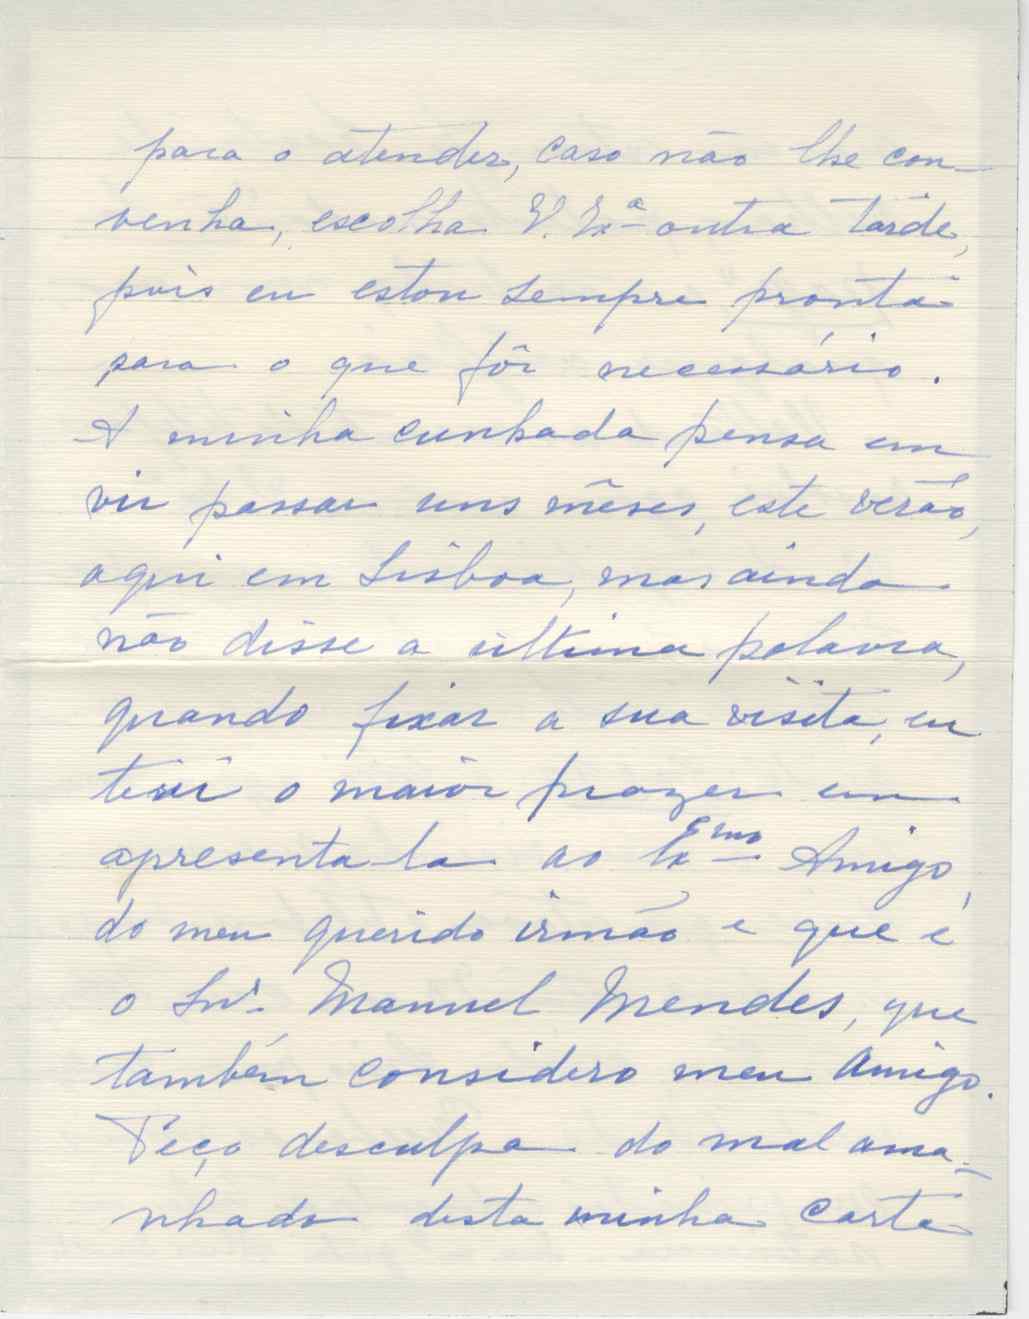 para o atender, caso não lhe con-
venha, escolha V. Exª outra tarde,
pois eu estou sempre pronta
para o que fôr necessário.
A minha cunhada pensa em
vir passar uns mêses, este verão,
aqui em Lisboa, mas ainda
não disse a ultima palavra,
quando fixar a sua visita, eu
terei o maior prazer em
apresenta-la ao Exmo Amigo,
do meu querido irmão e que é
o Snr. Manuel Mendes, que
também considero meu Amigo.
Peço desculpa do mal ama-
nhado desta minha carta